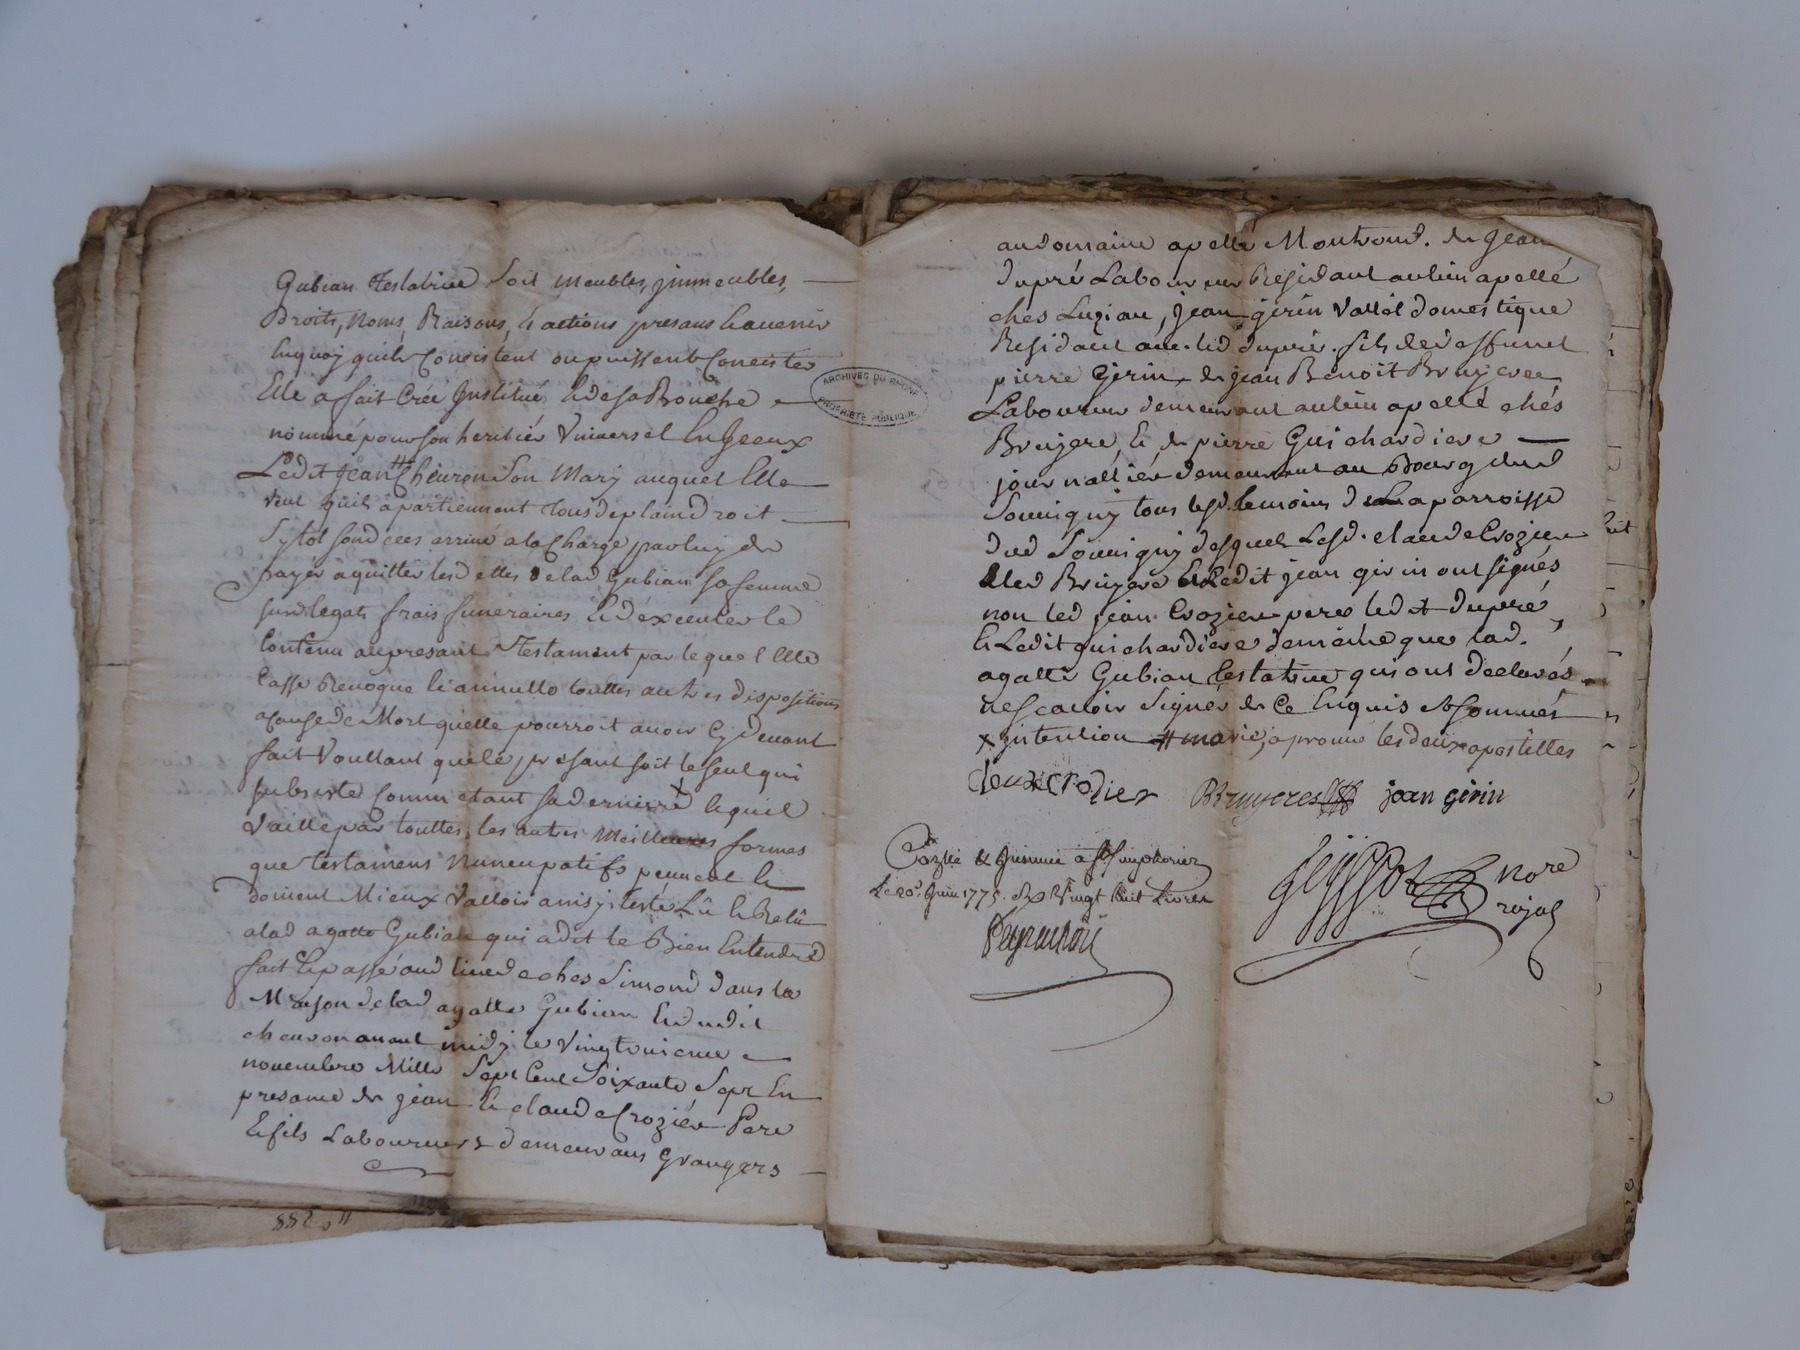 Gubian Testatrice soit meubles, jmmeubles,
droits, noms, Raisons, & actions presans & avenir
Enquoy quils Consistent ou puissent Consister
Elle a fait Créé Jnstitué & de sa Bouche
nommé pour son heritiér Universel
Ledit Jean ## Cheuron son Mary auquel Elle
veut quils apartiennent tous de plain droit
Sytot son deces arrivé a la Charge par luy de
payér aquitter les dettes de lad Gubian sa femme
sesd legats frais funéraires & d'éxecuter le
Contenu au presant Testament par lequel Elle
Casse Revoque & annulle touttes autres dispositions
a cause de Mort quelle pourroit avoir Cy devant
fait Voullant que le presant soit le seul qui
subsiste Comm etant sa derniere x lequel
vaille par touttes les autres Meilleures formes
que testamens Nuncupatifs peuvent &
doivent Mieux Valloir ainsy testé Lû & Relû
a lad agatte Gubian qui a dit le Bien Entendre
fait & passé aud lieu de chés Simond dans la
Maison de lad agatte Gubian & dudit
cheuron avant midy le Vingtroisieme
novembre Mille Sept Cent Soixante Sept En
presance de jéan & claude Croziér Pere
& fils Laboureurs demeurans Grangers
au domaine apellé Montrond. de Jean
dupré Laboureur Residant au lieu apellé
chés Lugian, jean gérin vallét domestique
Residant avec led dupré. fils de deffunct
pierre Gérin, de jéan Benoit Bruyere
Laboureur demeurant au lieu apellé chés
Bruyere, & de pierre Guichardiere
journalliér demeurant au Bourg dud
Souvigny tous lesd. temoins de La parroisse
dud Souvigny desquels Lesd. claude Crozier
Led Bruyere & Ledit jean girin ont signés
non led jéan Crozier pere ledit dupré,
& Ledit guichardiere de méme que lad.
agatte Gubian testatrice qui ont declarés
ne scavoir Signér de Ce Enquis & sommés
x jntention # marie, aprouvé les deux apostilles
Crozier BBruyeres jean girin
Controllé & Jnsinué a St Simphorien
Le 20e. Juin 1775. Rx Vingt huit Livres
nore
royal
ARCHIVES DU RHONE
PROPRIÉTÉ PUBLIQUE